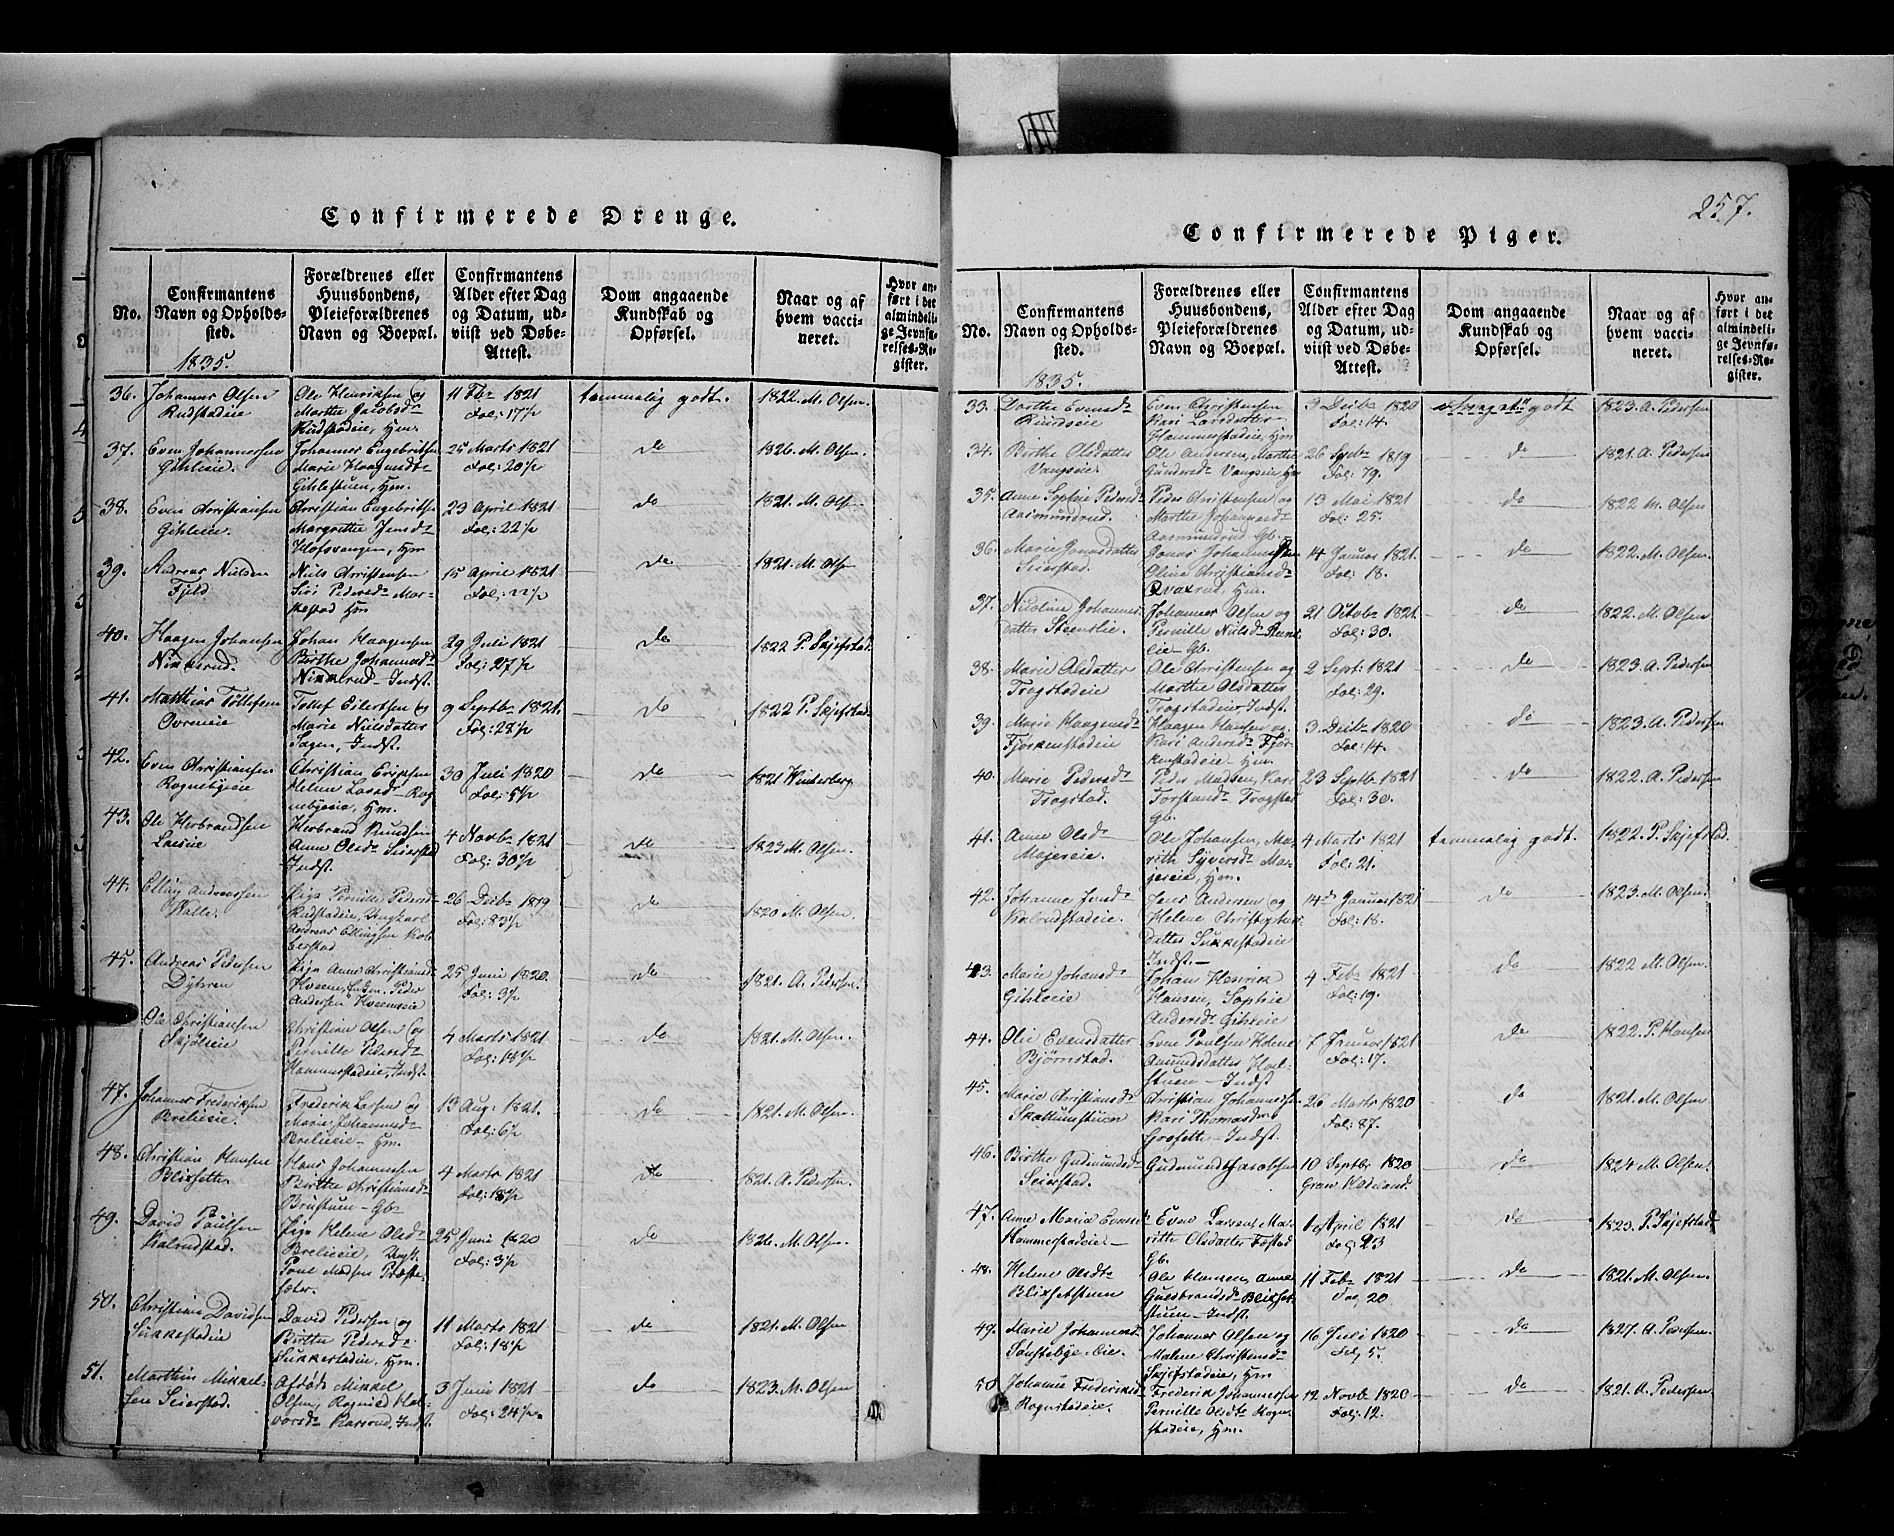 257.
Confirmerede Drenge.
No.
Confirmantens
Navn og Opholds-
sted.
1835.
Forældrenes eller
Huusbondens,
Pleieforældrenes
Navn og Boepæl.
Confirmantens
Alder efter Dag
og Datum, ud-
viist ved Døbe-
Attest.
Dom angaaende
Kundskab og
Opførsel.
Naar og af
hvem vacci-
neret.
Hvor an-
ført i det
almindeli-
ge Jevnfø-
relses-Re-
gister.
36. Johannes Olsen
Rudstadeie
Ole Henriksen og
Marthe Jacobsdr
Rudstadeie, Hm.
11 Fbr 1821
Fol: 17½
temmelig godt.
1822. M. Olsen.
37. Even Johannessen
Gihleeie.
Johannes Engebritsen
Marie Haagensdr
Gihlestuen, Hm.
25 Marts 1821
Fol: 20½
do
1826. M. Olsen.
38. Even Christiansen
Gihleeie.
Christian Engebritsen
Margrethe Jensdr
Hofsvangen, Hm
23 April 1821
Fol: 22½
do
1821. M. Olsen.
39. Andreas Nielsen
Fjeld
Niels Christensen
Siri Pedersdr
15 April 1821
do
1821. M. Olsen
40. Haagen Johansen
Nixerud.
Johan Haagensen
Birthe Johannesdr
Nixerud Indst.
29 Juli 1821
Fol: 27½
do
1822 P. Skjefstad.
41. Matthias Tollefsen
Tollef Eilertsen og
Marie Nielsdatter
Sagen, Indst.
9 Septbr 1821.
Fol: 28½
do
1822 P. Skjefstad
42. Even Christiansen
Rognebyeie
Christian Eriksen
Helene Larsdr Rog
nebyeie, Hm.
30 Juli 1820
Fol: 5½
do
1821 Winterberg
43. Ole Herbrandsen
Herbrand Knudsen
Anne Olsdr Seierstad
Indst.
4 Novbr 1821
Fol: 30½
do
1823 M. Olsen.
44. Elling Andreassen
Kalle.
Pige Pernille Pedersdr
Rudstadeie, Ungkarl
Andreas Ellingsen Kol
berstad
26 Debr 1819
Fol: 83½
do
1820 M. Olsen.
45. Andreas Pedersen
Dyhren
Pige Anne Christiansdr
Hveem, Enkm. Peder
Andersen Hveemseie
25 Juni 1820.
Fol: 3½
do
1821. A. Pedersen.
Ole Christiansen
Skjølseie
Christian Olsen og
Pernille Pedersdr
Hammerstadeie, Indst.
4 Marts 1821
Fol: 18½
do
1821. M. Olsen.
47. Johannes Frederiksen
Brelieeie.
Frederik Larsen og
Marie Johannesdr
Brelieeie Hm.
13 Aug: 1821.
Fol: 6½
do
1821. M. Olsen.
48. Christian Hansen
Blixsetter
Hans Johannesen
Birthe Christiansdr
Brustuen Gbr
4 Marts 1821
Fol: 18½
do
1821. A. Pedersen.
49. David Poulsen
Kalrudstad.
Pige Helene Olsdr
Brelieeie, Ungk.
Poul Madsen Præste-
sæter.
25 Juni 1820
Fol: 3½
do
1826. M. Olsen.
50. Christian Davidsen
Sukkestadeie
David Pedersen og
Birthe Pedersdr
Sukkestadeie, Hm.
11 Marts 1821
Fol: 18½
do
1821. M. Olsen
51. Marthin Mikkel-
sen Seierstad.
Afdøde Mikkel
Olsen, Ragnild Hal-
vorsdr Indst.
3 Juni 1821
Fol: 24½
do
1823. M. Olsen
Confirmerede Piger.
No.
Confirmantens
Navn og Opholds-
sted.
1835.
Forældrenes eller
Huusbondens,
Pleieforældrenes
Navn og Boepæl.
Confirmantens
Alder efter Dag
og Datum, ud-
viist ved Døbe-
Attest.
Dom angaaende
Kundskab og
Opførsel.
Naar og af
hvem vacci-
neret.
Hvor an-
ført i det
almindeli-
ge Jevnfø-
relses-Re-
gister.
33. Dorthe Evensdr
Even Christensen
Kari Larsdatter
Hammerstadeie, Hm
3 Debr 1820
Fol: 14.
Meget godt
1823. A. Pedersen
34. Birthe Olsdatter
Vangseie.
Ole Andersen, Marthe
Gundersdr Vangseie, Hm
26 Septbr 1819
Fol: 79.
do
1821. A. Pedersen
35. Anne Sophie Pedersdr
Aasmundrud.
Peder Christensen og
Marthe Johannesdr
Aasmundrud Gb.
13 Mai 1821
Fol: 25.
do
1822 M. Olsen
36. Marie Jonasdatter
Seierstad.
Jonas Johannesen
Oline Christiansdr
Hm.
14 Januar 1821.
Fol: 18.
do
1822. M. Olsen
37. Nicoline Johannes-
datter Steenslie.
Johannes Olsen og
Pernille Nielsdr
lie Gb.
21 Octobr 1821
Fol: 30.
do
1822. M. Olsen
38. Marie Olsdatter
Trogstadeie
Ole Christensen og
Marthe Olsdatter
Trogstadeie, Indst.
2 Sept: 1821
Fol: 29.
do
1823 A. Pedersen
39. Marie Haagensdr
Fjørkenstadeie
Haagen Hansen og
Kari Andersdr Fjør-
kenstadeie Hm.
3 Debr 1820
Fol: 14.
do
1823. A. Pedersen
40. Marie Pedersdr
Trogstad.
Peder Madsen, Kari
Torstensdr Trogstad
Gb.
23 Septbr 1821
Fol: 30.
do
1822. A. Pedersen
41. Anne Olsdr
Majereie.
Ole Johansen, Ma-
rithe Syversdr Ma-
jereie, Hm.
4 Marts 1821
Fol: 21.
temmelig godt.
1822. P. Skjefstad.
42. Johanne Jensdr
Kalrudstadeie.
Jens Andersen og
Helene Christophers
datter Sukkestadeie
Indst.
14de Januar 1821
Fol: 18.
do
1823. M. Olsen.
43. Marie Johansdr
Gihleeie
Johan Henrik
Hansen, Sophie
Andersdr Gihleeie
4 Feb 1821
Fol: 19.
do
1822 M. Olsen.
44. Olie Evensdatter
Bjørnstad.
Even Poulsen Helene
Amundsdatter Hoel-
stuen Indst
7 Januar 1821
Fol: 17.
do
1822. P. Hansen
45. Marie Christiansdr
Skattumstuen
Christian Johannesen
Kari Thomasdr
Grosetter Indst.
26 Marts 1820
Fol: 87.
do
1821. M. Olsen
46. Birthe Gudmundsdr
Seierstad.
Gudmund Jacobsen
10 Septbr 1820
Gran Hadeland.
do
1824 M. Olsen.
47. Anne Maria Evensdr
Hammerstadeie.
Even Larsen, Ma-
rithe Olsdatter Fæstad
Gb.
1 April 1821
Fol: 23
do
1823. P. Skjefstad
48. Helene Olsdr
Blixetstuen
Ole Hansen, Anne
Gulbrandsdr Blixset-
stuen Indst.
11 Feb 1821
Fol, 20.
do
1821. M. Olsen.
49. Marie Johannesdr
Sønstebye-eie.
Johannes Olsen og
Malene Christensdr
Skjefstadeie, Hm
16 Juli 1820
Fol, 5.
do
1827. A. Pedersen.
50. Johanne Frederiksdr
Rognstadeie.
Frederik Johannessen
Pernille Olsdr Rogn-
stadeie, Hm.
12 Novbr 1820
Fol: 12.
do
1821. A. Pedersen